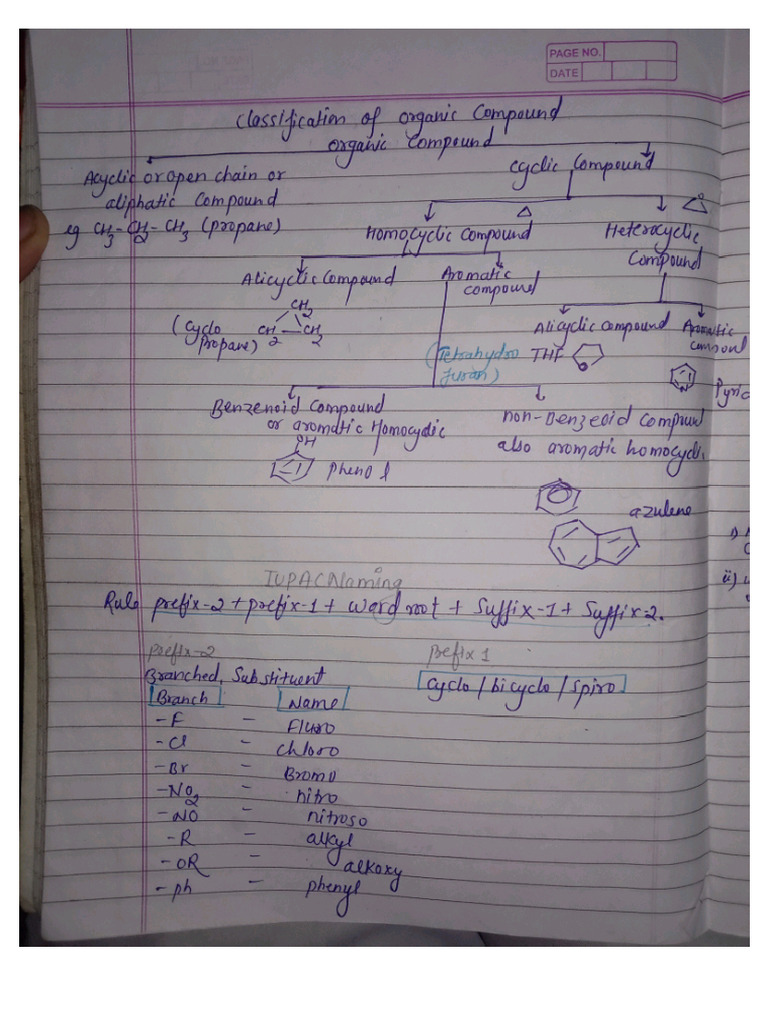 PAGE NO.
DATE
Classification of organic Compound
organic Compound
Acyclic or open chain or
aliphatic Compound
eg CH3-CH2-CH3 (propane)
Cyclic Compound
Homocyclic Compound
Heterocyclic
Compound
Alicyclic Compound
Aromatic
compound
(Cyclo
propane)
CH2
CH2 CH2
Alicyclic compound
(Tetrahydro
furan)
THF
O
Aromatic
compound
N
Benzenoid Compound
or aromatic Homocyclic
OH
phenol
non-Benzeoid compound
also aromatic homocycli.
azulene
i)
ii)
IUPAC Naming
Rule prefix-2 + prefix-1 + word root + Suffix-1 + Suffix-2.
prefix-2
prefix 1
Branched, Substituent
Cyclo / bicyclo / spiro
Branch Name
-F - Fluro
-Cl - chloro
-Br - Bromo
-NO2 - nitro
-NO - nitroso
-R - alkyl
-OR - alkoxy
-ph - phenyl